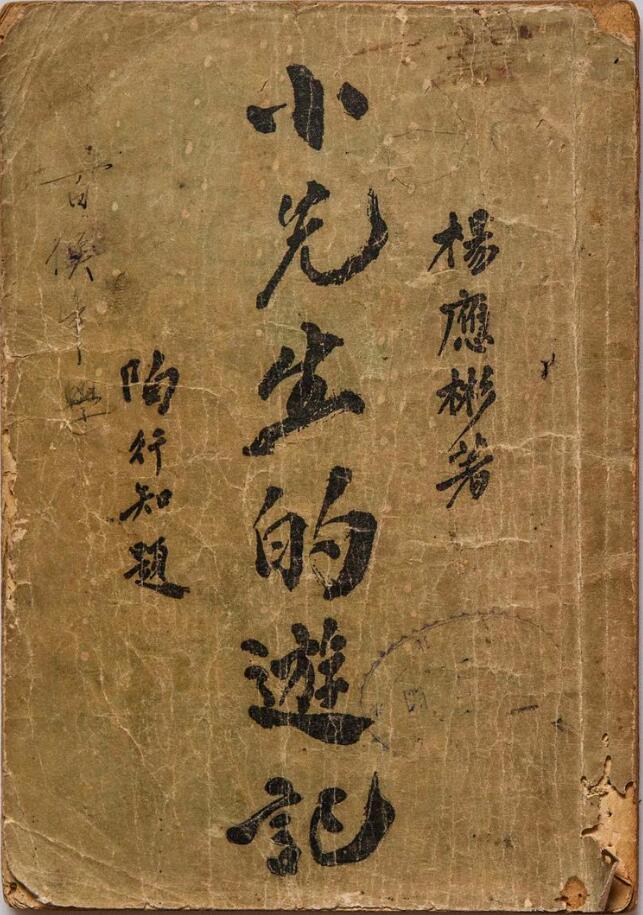 楊應彬著
小先生的遊記
陶行知題
百侯中學